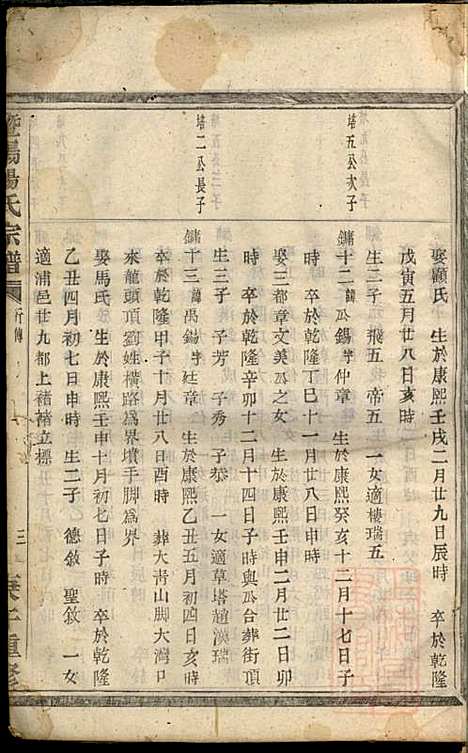 娶顧氏　生於康熙壬戌二月廿九日辰時　卒於乾隆
戊寅五月廿八日亥時
生二子 飛五 帝五 一女適樓瑞五
塔五公次子
鏞十二諱公錫字仲章　生於康熙癸亥十二月十七日子
時　卒於乾隆丁巳十一月廿八日申時
娶三都章文美公之女　生於康熙壬申二月廿二日卯
時　卒於乾隆辛卯十二月十四日子時與公合葬街頂
生三子 子芳 子秀 子恭 一女適草塔趙漢瑞
塔二公長子
鏞十三諱禹錫字廷章　生於康熙乙丑五月初四日亥時
卒於乾隆甲子十月廿八日酉時　葬大青山脚大灣口
來龍頭頂劉姓橫路為界墳手脚為界
娶馬氏　生於康熙壬申十月初七日子時　卒於乾隆
乙丑四月初七日申時 生二子 德敘 聖敘 一女
適浦邑廿九都上褚褚立標
暨陽楊氏宗譜 行傳 三 重修